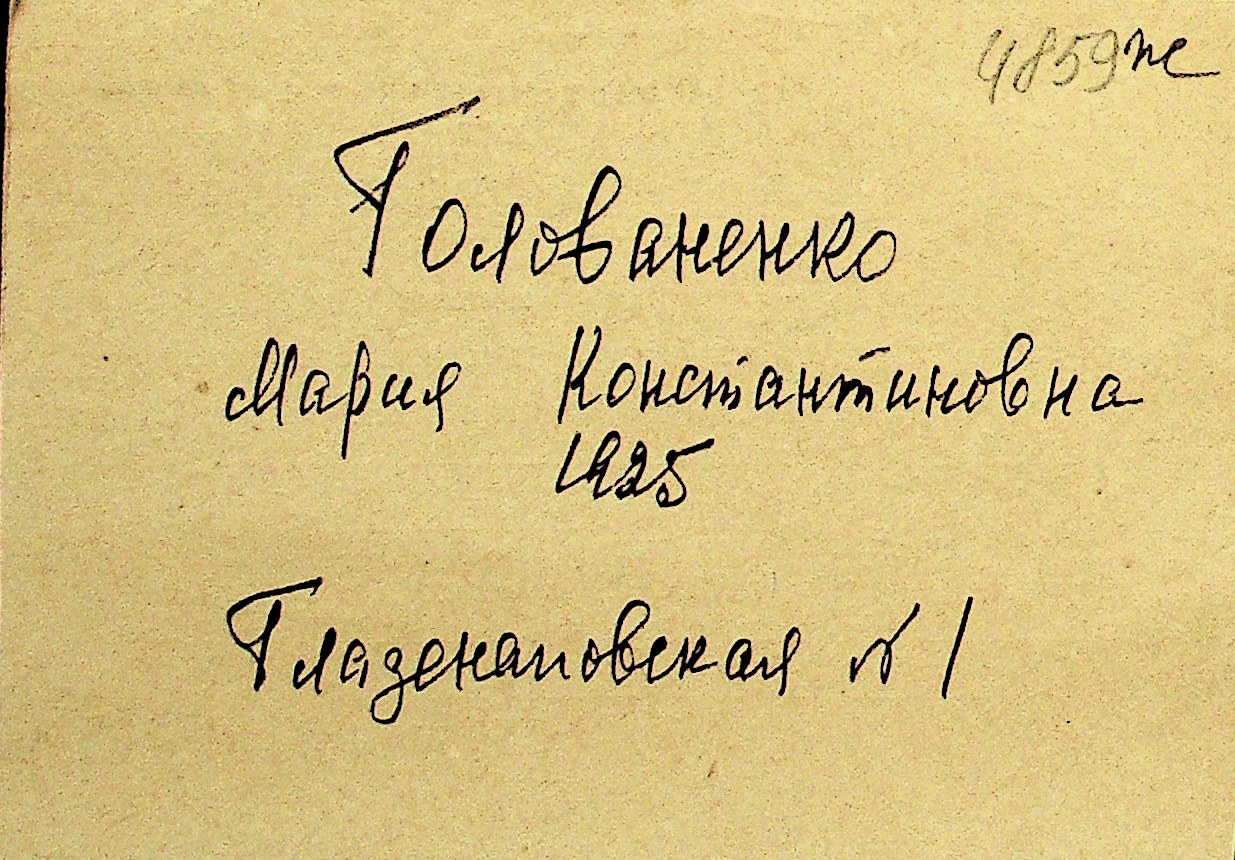 4859 же
Голованенко
Мария Константиновна
1925
Глазенаповская № 1